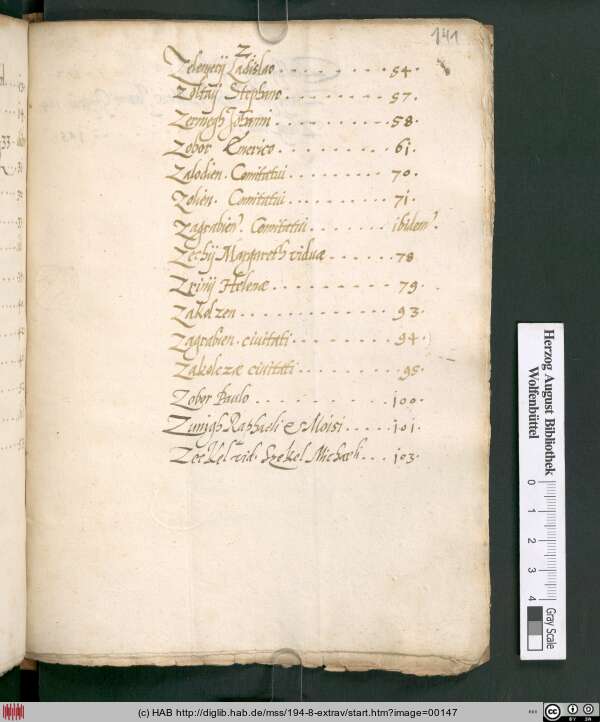 141
Z
Zelemerij Ladislao . . . . . . . . 54.
Zoltaij Stephano . . . . . . . . 57.
Zermegh Joanni . . . . . . . . 58.
Zobor Emerico . . . . . . . . . 61.
Zalodien. Comitatui . . . . . . . . 70.
Zolien. Comitatui . . . . . . . . 71.
Zagrabien. Comitatui . . . . . . . ibidem.
Zechij Margareth viduæ . . . . . 78
Zrinij Helenæ . . . . . . . . 79.
Zakolzen . . . . . . . . . . . . 93.
Zagrabien. civitati . . . . . . . . 94.
Zakolczæ civitati . . . . . . . . 95.
Zobor Paulo . . . . . . . . . . 100.
Raphaeli & Moisi . . . . . 101.
Zeckel vid. Szekel Michaeli . . . 103.
Herzog August Bibliothek
Wolfenbüttel
0 1 2 3 4
Gray Scale
(c) HAB http://diglib.hab.de/mss/194-8-extrav/start.htm?image=00147
cc BY SA